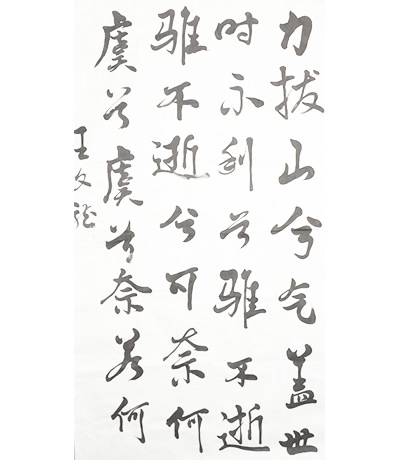 力拔山兮气盖世
时不利兮骓不逝
骓不逝兮可奈何
虞兮虞兮奈若何
王文